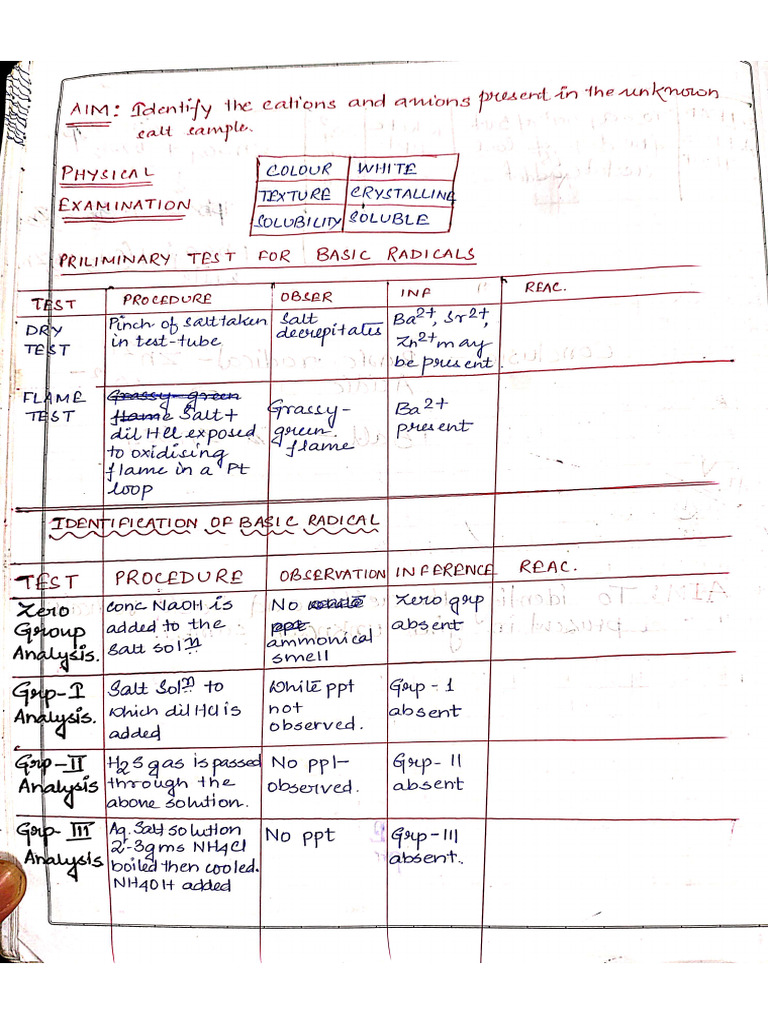 AIM: Identify the cations and anions present in the unknown
salt sample.
PHYSICAL
EXAMINATION
COLOUR WHITE
TEXTURE CRYSTALLINE
SOLUBILITY SOLUBLE
PRILIMINARY TEST FOR BASIC RADICALS
TEST PROCEDURE OBSER INF REAC.
DRY Pinch of salt taken Salt Ba2+, Sr2+,
TEST in test-tube decrepitates Zn2+ may
be present.
FLAME Grassy-green Grassy- Ba2+
TEST flame Salt + green present
dil HCl exposed flame
to oxidising
flame in a Pt
loop
IDENTIFICATION OF BASIC RADICAL
TEST PROCEDURE OBSERVATION INFERENCE REAC.
Zero conc NaOH is No white Zero grp
Group added to the ppt absent
Analysis. salt soln ammonical
smell
Grp-I Salt Soln to White ppt Grp-1
Analysis. which dil HCl is not absent
added observed.
Grp-II H2S gas is passed No ppt Grp-II
Analysis through the observed. absent
above solution.
Grp-III Aq. Salt solution No ppt Grp-III
Analysis. 2-3gms NH4Cl absent.
boiled then cooled.
NH4OH added